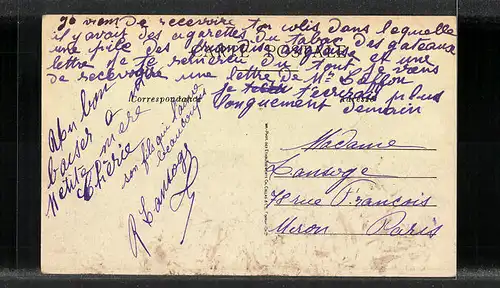 Je viens de recevoire ton colis dans laquelle
il y avait des cigarettes du tabac des gateaux
une pile des friandise anglaise
lettre je te remercie du tout et une
de recevoire une lettre de Mr je viens
je t'écrirai plus
longuement demain
CARTE POSTALE
Correspondance
Adresse
un bon
baiser à
petite mère
chérie
ton fils qui t'aime
beaucoup
R Lansoge
Madame
Lansoge
78 rue François
Miron Paris